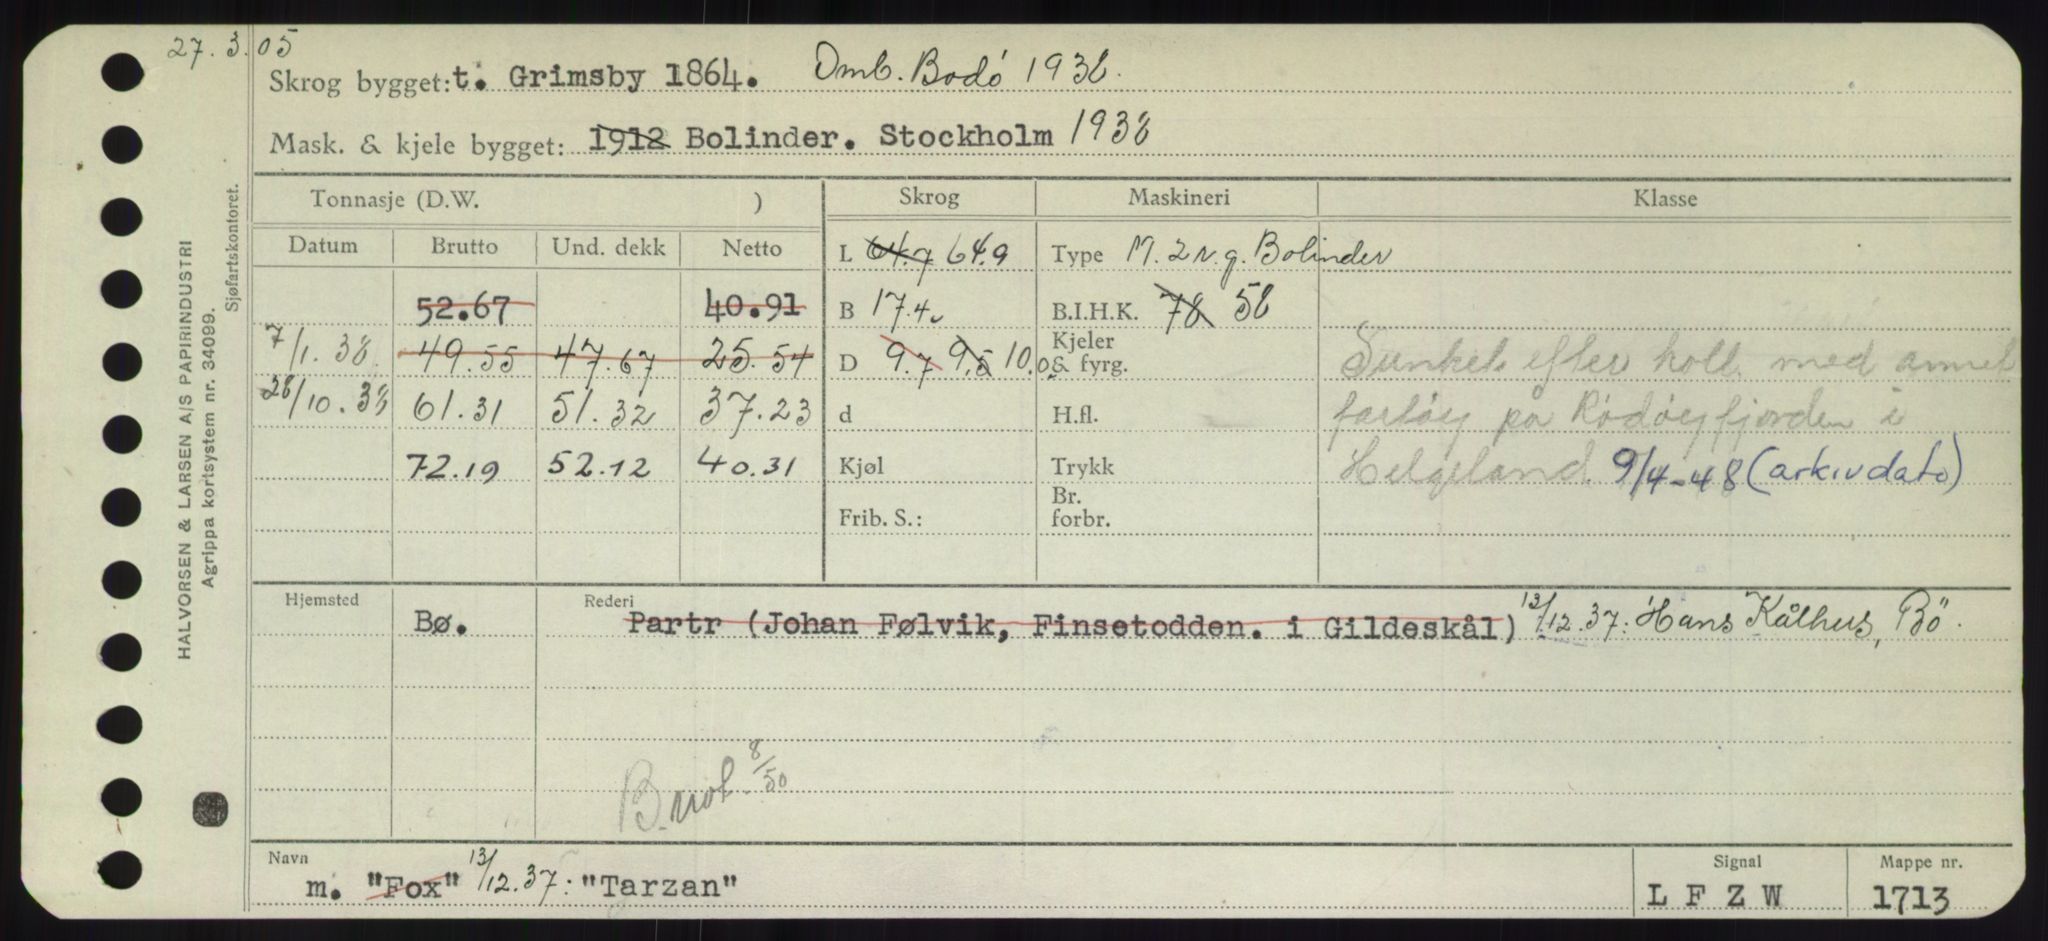 27.3.05
Skrog bygget: t. Grimsby 1864. Omb. Bodö 1938.
Mask. & kjele bygget: 1912 Bolinder. Stockholm 1938
Tonnasje (D.W. ) Skrog Maskineri Klasse
Datum Brutto Und. dekk Netto L 64.7 64.9 Type M. 2 v. g. Bolinder
52.67 40.91 B 17.4 B.I.H.K. 78 58
7/1.38. 49.55 47.67 25.54 D 9.7 9.5 10.0 Kjeler & fyrg.
28/10.38 61.31 51.32 37.23 d H.fl.
72.19 52.12 40.31 Kjøl Trykk
Frib. S.: Br. forbr.
Sunket efter koll. med annet
fartöy på Rödöyfjorden i
Helgeland 9/4-48 (arkivdato)
Hjemsted Rederi
Bø. Partr (Johan Følvik, Finsetodden. i Gildeskål) 13/12.37: Hans Kålhus, Bö.
8/50
Navn Signal Mappe nr.
m. "Fox" 13/12.37: "Tarzan" L F Z W 1713
HALVORSEN & LARSEN A/S PAPIRINDUSTRI
Agrippa kortsystem nr. 34099.
Sjøfartskontoret.